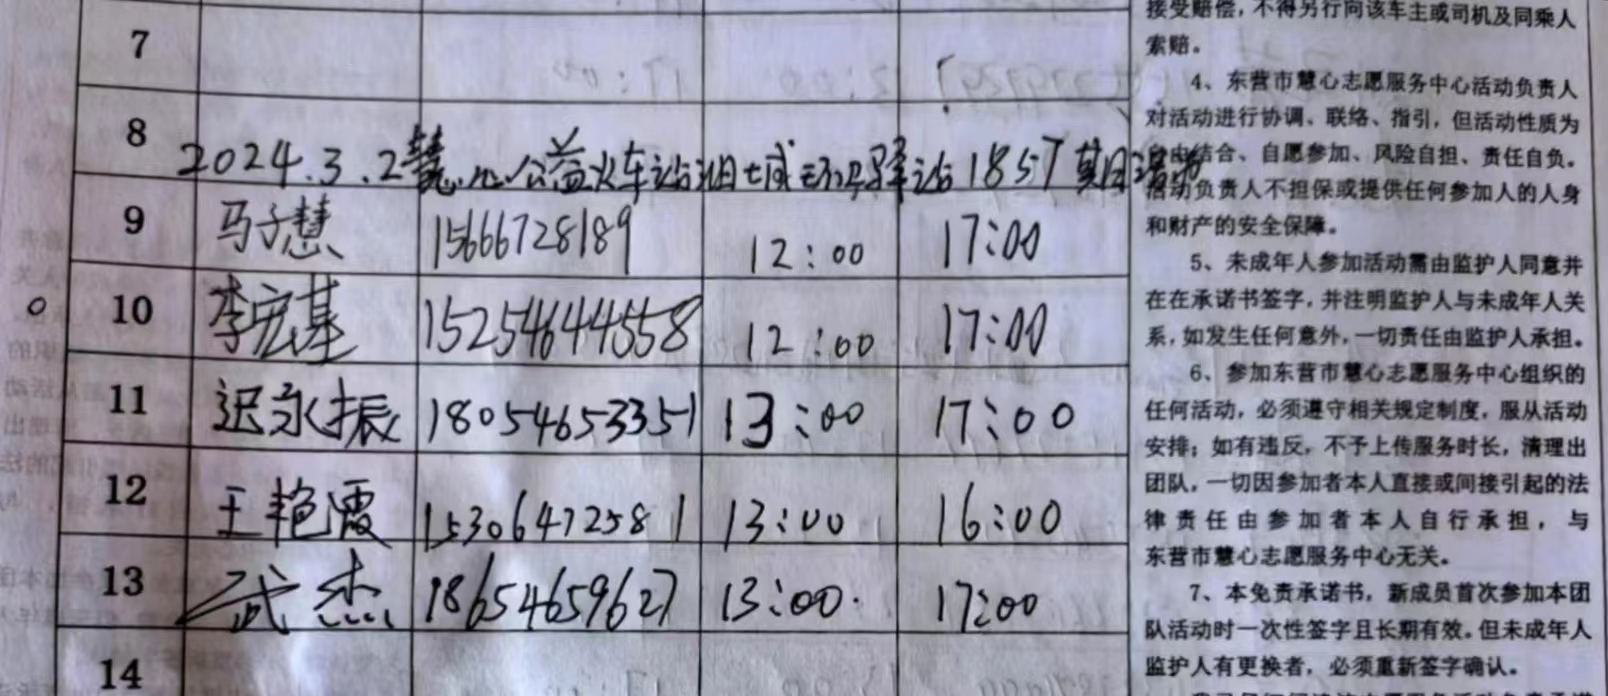 7
8
2024.3.2慧心公益火车站湖城环卫驿站1857期
9 马子慧 15666728189 12:00 17:00
10 李宏基 15254644558 12:00 17:00
11 迟永振 18054653351 13:00 17:00
12 王艳霞 15306472581 13:00 16:00
13 武杰 18654659627 13:00 17:00
14
接受赔偿，不得另行向该车主或司机及同乘人
索赔。
4、东营市慧心志愿服务中心活动负责人
对活动进行协调、联络、指引，但活动性质为
自由结合、自愿参加、风险自担、责任自负。
活动负责人不担保或提供任何参加人的人身
和财产的安全保障。
5、未成年人参加活动需由监护人同意并
在在承诺书签字，并注明监护人与未成年人关
系，如发生任何意外，一切责任由监护人承担。
6、参加东营市慧心志愿服务中心组织的
任何活动，必须遵守相关规定制度，服从活动
安排；如有违反，不予上传服务时长，清理出
团队，一切因参加者本人直接或间接引起的法
律责任由参加者本人自行承担，与
东营市慧心志愿服务中心无关。
7、本免责承诺书，新成员首次参加本团
队活动时一次性签字且长期有效。但未成年人
监护人有更换者，必须重新签字确认。